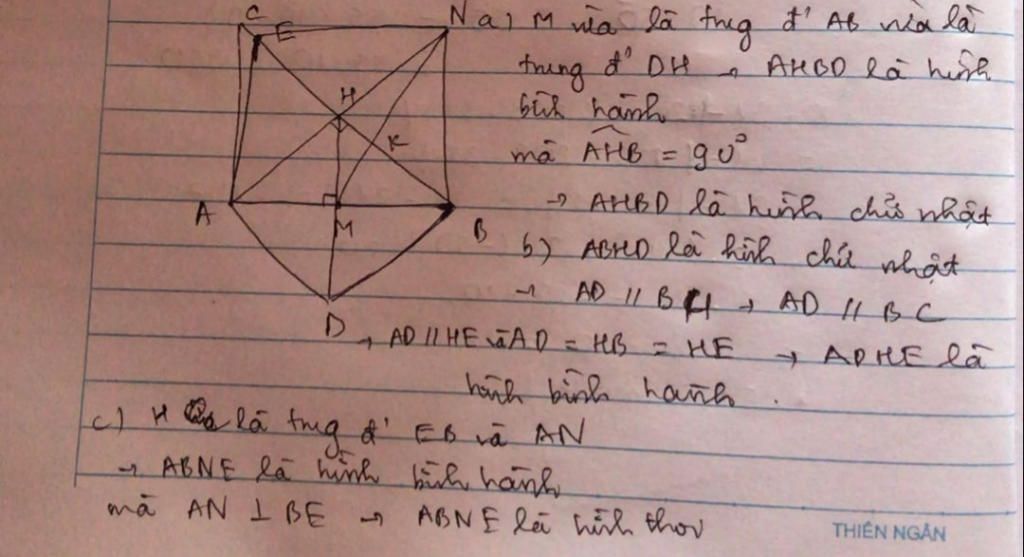 C
E
N
H
K
A
M
B
D
a) M vừa là trug đ' AB vừa là
trung đ' DH → AHBD là hình
bình hành
mà AHB = 90°
→ AHBD là hình chữ nhật
b) ABHD là hình chữ nhật
→ AD // BH → AD // BC
→ AD // HE và AD = HB = HE → ADHE là
hình bình hành.
c) H là trug đ' EB và AN
→ ABNE là hình bình hành
mà AN ⊥ BE → ABNE là hình thoi
THIÊN NGÂN